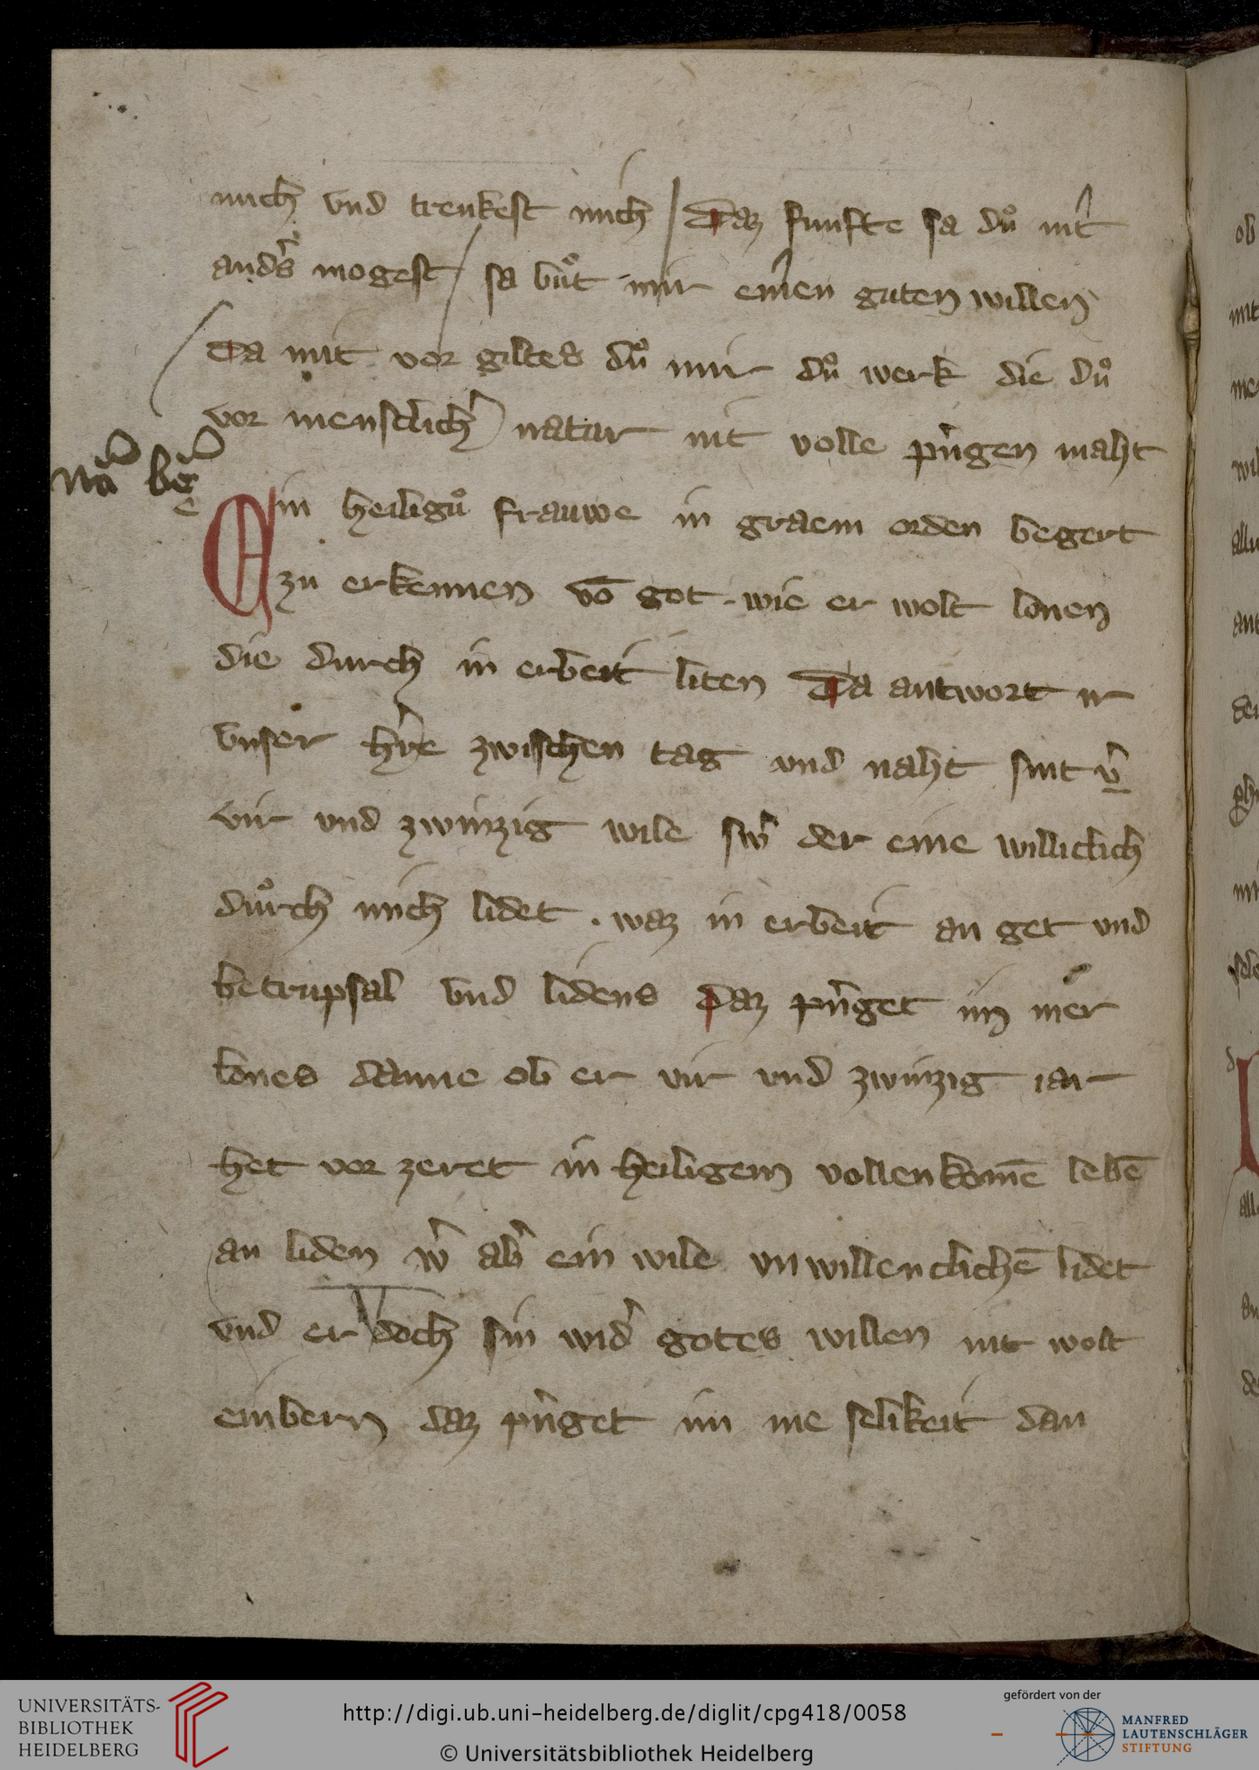 mich vnd trenkest mich / Daz funfte sa duͦ nit
anders mogest / sa buͦt mir einen guten willen
Da mit vor giltes duͦ mir duͦ werk die duͦ
vor menschlicher natur nit volle pringen maht
Ein heiliguͦ frauwe in graem orden begert
zu erkennen vō got · wie er wolt lonen
die durch in erbeit liten Da antwort ir
vnser hrre zwischen tag vnd naht sint
vir vnd zwinzig wile swer der eine williclich
duͦrch mich lidet · waz in erbeit an get vnd
betrupsal vnd lidens daz pringet im mer
lones danne ob er vir vnd zwinzig iar
het vor zeret in heiligem vollenkomē lebē
an liden wer aber ein wile vnwillenclichē lidet
vnd er doch sin wider gotes willen nit wolt
einbern daz pringet im me selikeit dan
UNIVERSITÄTS-
BIBLIOTHEK
HEIDELBERG
http://digi.ub.uni-heidelberg.de/diglit/cpg418/0058
© Universitätsbibliothek Heidelberg
gefördert von der
MANFRED
LAUTENSCHLÄGER
STIFTUNG